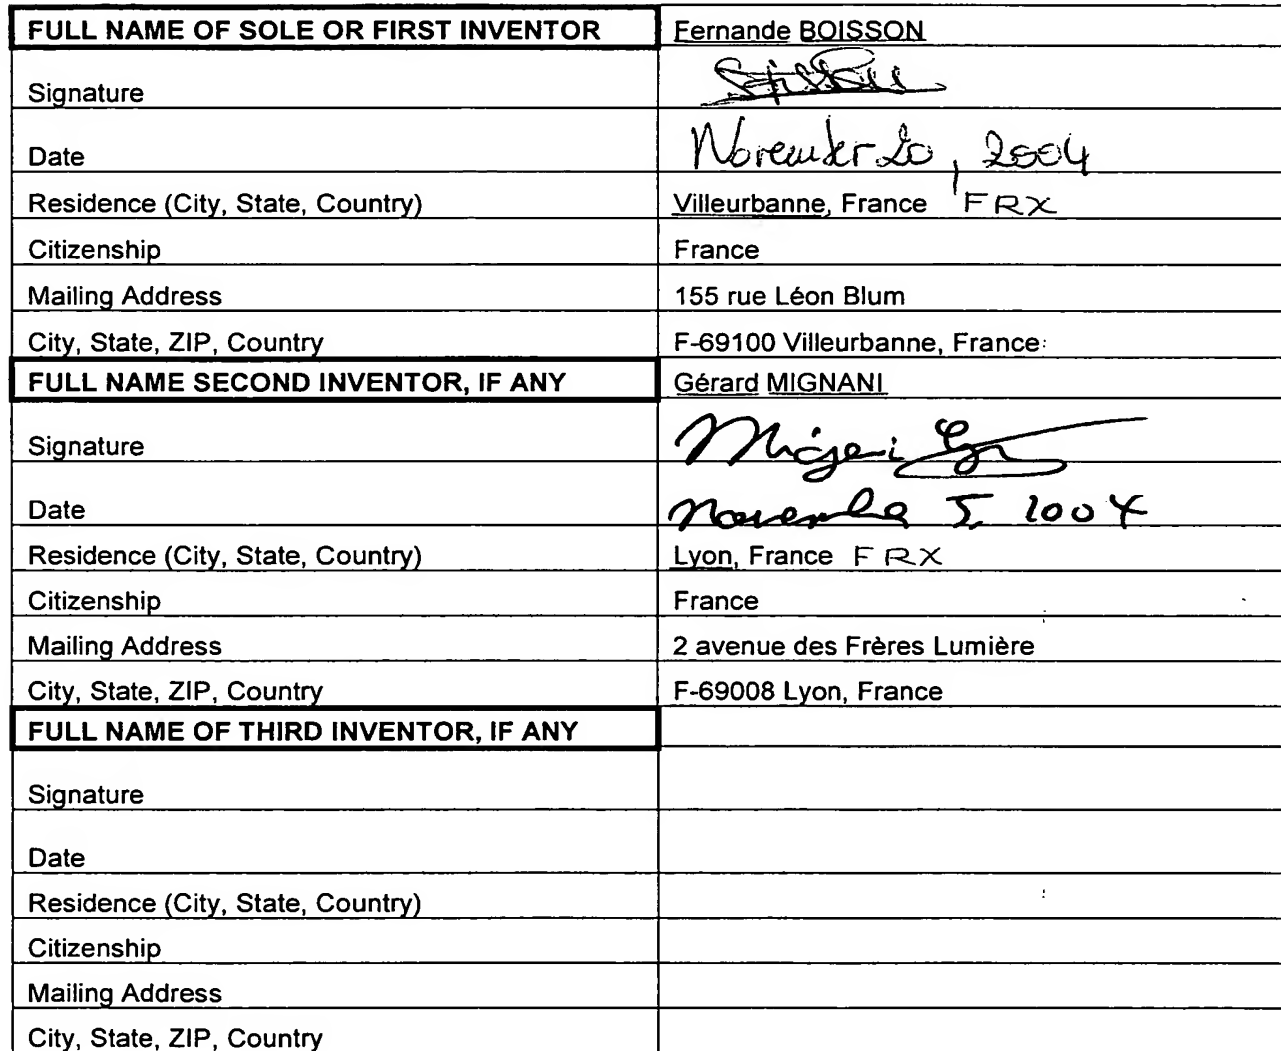 FULL NAME OF SOLE OR FIRST INVENTOR Fernande BOISSON
Signature
Date November 20, 2004
Residence (City, State, Country) Villeurbanne, France FRX
Citizenship France
Mailing Address 155 rue Léon Blum
City, State, ZIP, Country F-69100 Villeurbanne, France
FULL NAME SECOND INVENTOR, IF ANY Gérard MIGNANI
Signature
Date November 5, 2004
Residence (City, State, Country) Lyon, France FRX
Citizenship France
Mailing Address 2 avenue des Frères Lumière
City, State, ZIP, Country F-69008 Lyon, France
FULL NAME OF THIRD INVENTOR, IF ANY
Signature
Date
Residence (City, State, Country)
Citizenship
Mailing Address
City, State, ZIP, Country